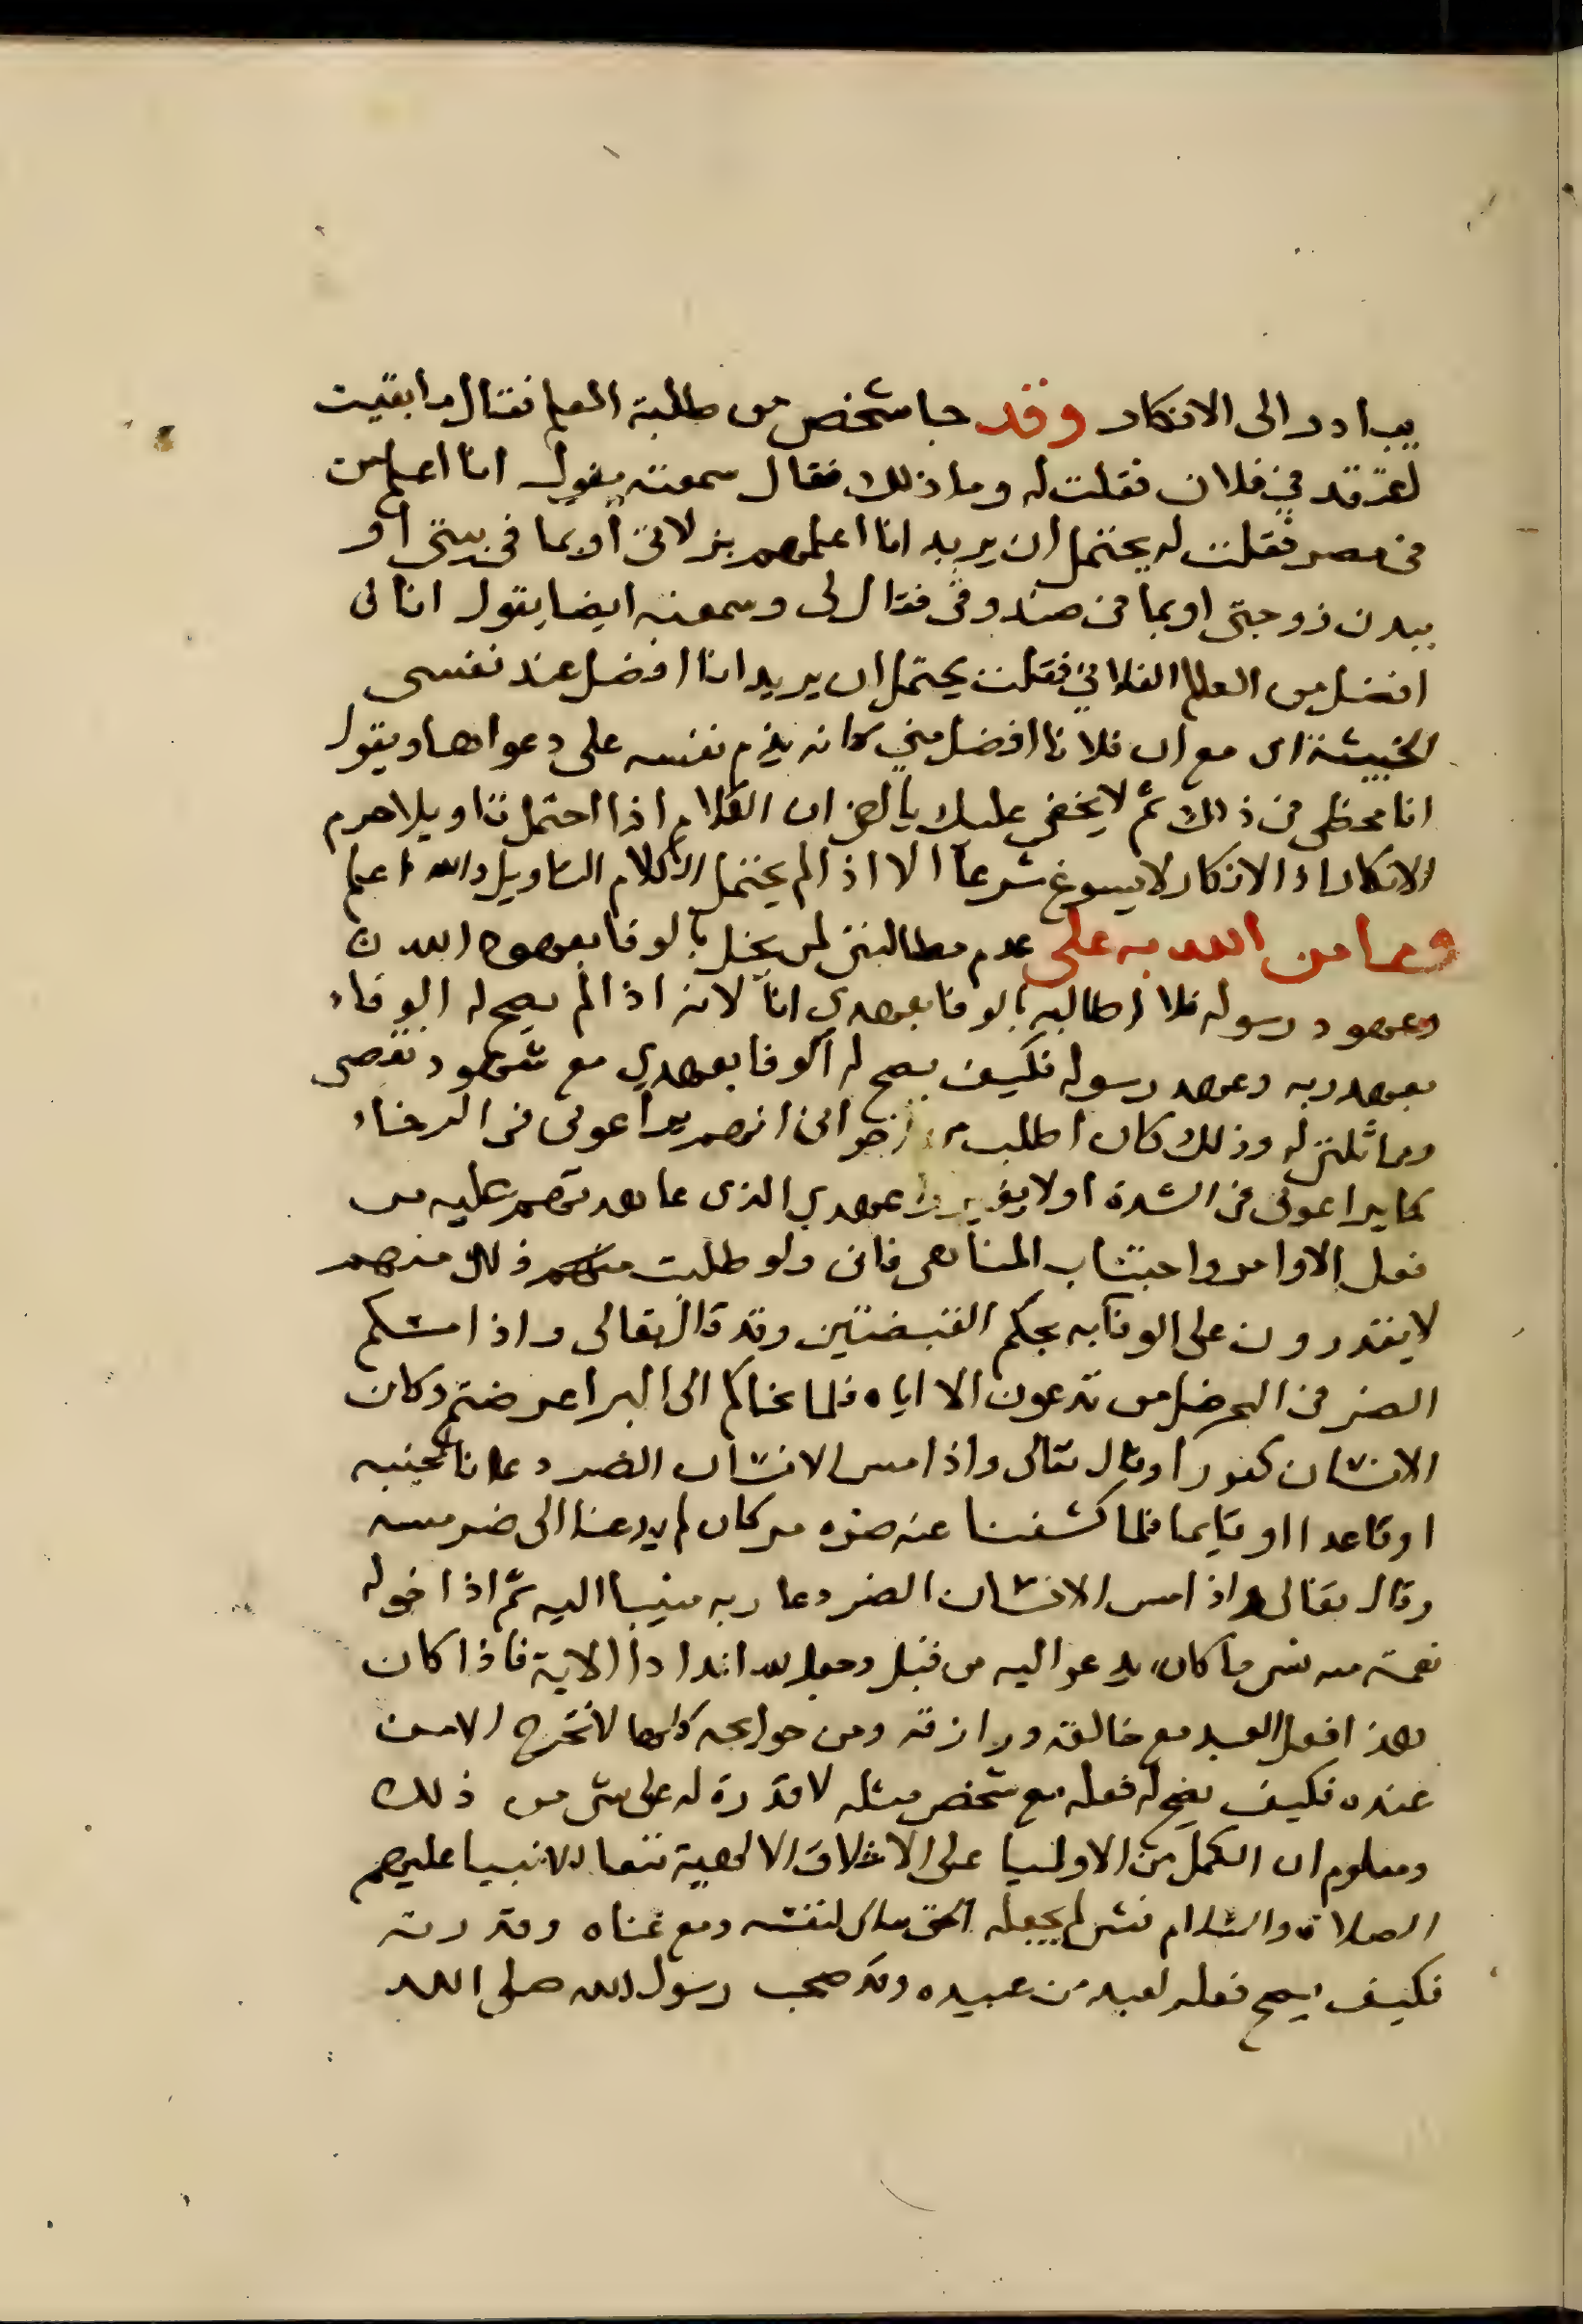 يبادر الى الانكار وقد جا شخص من طلبة العلم فقال ما بقيت
اعتقد في فلان فقلت له وما ذلك فقال سمعته يقول انا اعلم من
في مصر فقلت له يحتمل ان يريد انا اعلمهم بزلاتي او بما في بيتي او
ببدن زوجتي او بما في صندوقي فقال لي وسمعته ايضا يقول انا
افضل من العالم الفلاني فقلت يحتمل ان يريد انا افضل عند نفسي
الخبيثة اي مع ان فلانا افضل مني كانه يذم نفسه على دعواها ويقول
انا مخطي في ذلك ثم لا يخفى عليك يا اخي ان الكلام اذا احتمل تاويلا حرم
الانكار اذ الانكار لا يسوغ شرعا الا اذا لم يحتمل الكلام التاويل والله اعلم
ومما من الله به على عدم مطالبتي لمن يخل بالوفا بعهود الله
وعهود رسوله فلا اطالبه بالوفا بعهدي انا لانه اذا لم يصح له الوفاء
بعهد ربه وعهد رسوله فكيف يصح له الوفا بعهدي مع شهود نقصي
ومماثلتي له وذلك كان اطلب من اخواني انهم يراعوني في الرخاء
كما يراعوني في الشدة او لا يغيروا عهدي الذي عاهدتهم عليه من
فعل الاوامر واجتناب المناهي فاني ولو طلبت منهم ذلك منهم
لا يقدرون على الوفا به بحكم القبضتين وقد قال تعالى واذا مسكم
الضر في البحر ضل من تدعون الا اياه فلما نجاكم الى البر اعرضتم وكان
الانسان كفورا وقال تعالى واذا مس الانسان الضر دعانا لجنبه
او قاعدا او قايما فلما كشفنا عنه ضره مر كان لم يدعنا الى ضر مسه
وقال تعالى واذا مس الانسان الضر دعا ربه منيبا اليه ثم اذا خوله
نعمة منه نسي ما كان يدعو اليه من قبل وجعل لله اندادا الاية فاذا كان
هذا فعل العبد مع خالقه ورازقه ومن حوايجه كلها لا تخرج الا من
عنده فكيف يصح له فعله مع شخص مثله لا قدرة له على شي من ذلك
ومعلوم ان الكمل من الاوليا على الاخلاق الالهية تبعا للانبيا عليهم
الصلاة والسلام فشي لم يجعله الحق تعالى لنفسه ومع غناه وقدرته
فكيف يصح فعله لعبد من عبيده وقد صحب رسول الله صلى الله